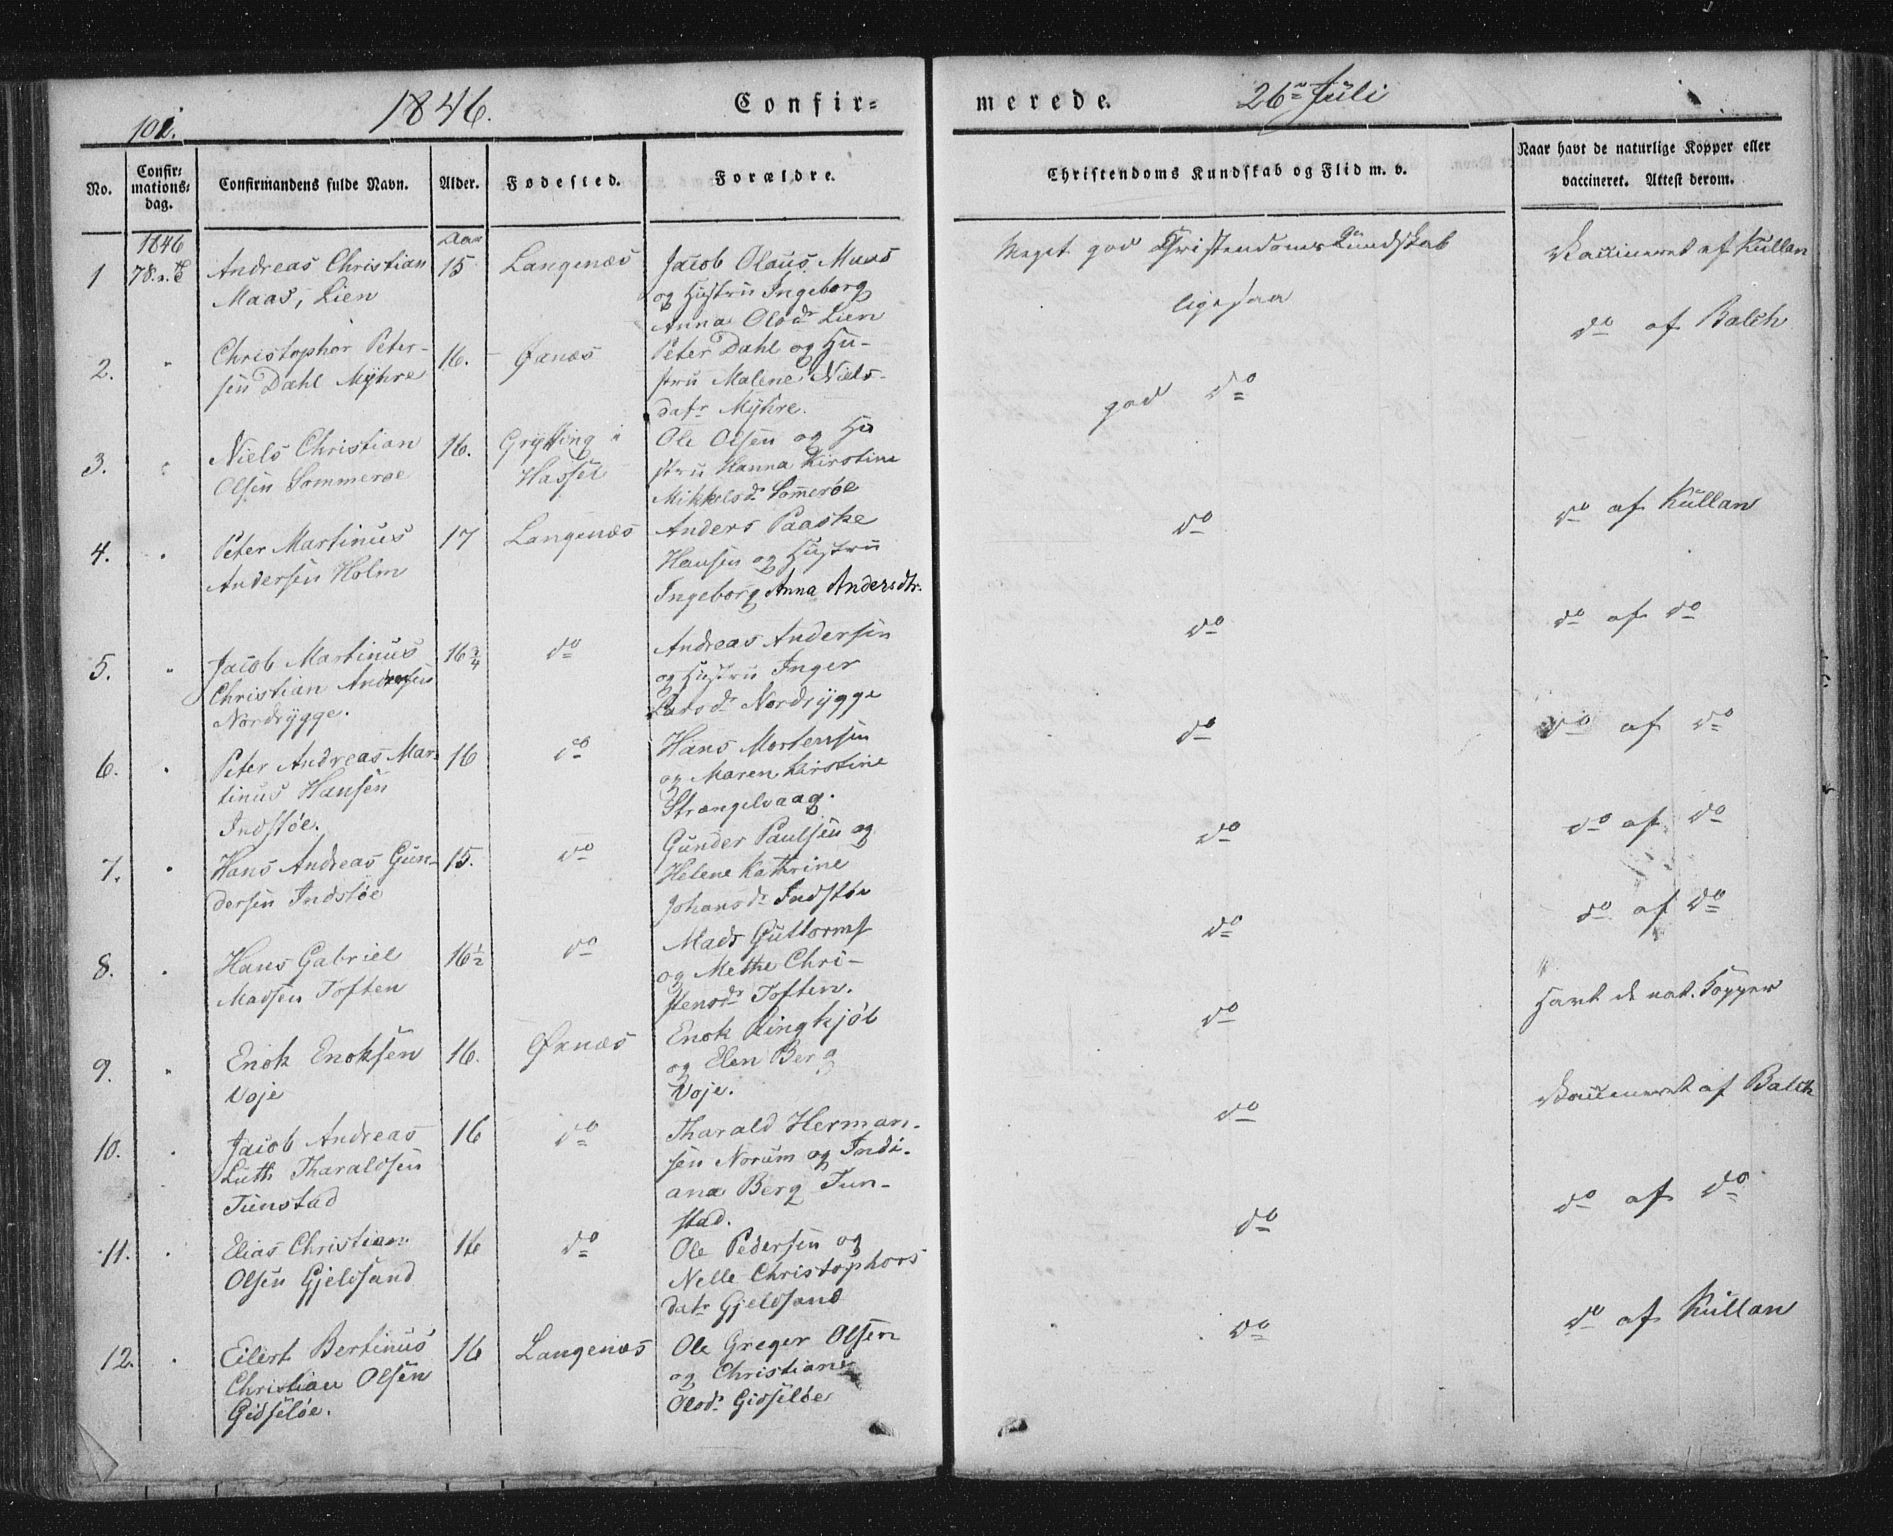 101.
1846.
Confir=
merede.
26de Juli
No.
Confir=
mations=
dag.
Confirmandens fulde Navn.
Alder.
Fødested.
Forældre.
Christendoms Kundskab og Flid m. v.
Naar havt de naturlige Kopper eller
vaccineret. Attest derom.
1846
Aar
1
Andreas Christian
Maas, Lien
15
Langenæs
Jacob Olaus Maas
og Hustru Ingeborg
Anna Olsdr Lien
Meget god Christendoms Kundskab
Vaccineret af Kullan
2.
Christopher Peter-
sen Dahl Myhre
16.
Øxnæs
Peter Dahl og Hu-
stru Malene Niels-
datr Myhre.
ligesaa
do af Balch
3.
Niels Christian
Olsen Sommeroe
16.
Grytting i
Hassel
Ole Olsen og Hu
stru Hanna Kirstine
Mikkelsdr Somerøe
god do
4.
Peter Martinus
Andersen Holm
17
Langenæs
Anders Paaske
Hansen og Hustru
Ingeborg Anna Andersdtr.
do
do af Kullan
5.
Jacob Martinus
Christian Andersen
Nordrygge.
16 3/4
do
Andreas Andersen
og Hustru Inger
Larsdr Nordrygge
do
do af do
6.
Peter Andreas Mar-
tinus Hansen
Indstøe.
16
do
Hans Mortensen
og Maren Kirstine
Strængelvaag.
do
do af do
7.
Hans Andreas Gun-
dersen Indstøe
15.
do
Gunder Paulsen og
Helene Kathrine
Johansdr Indstøe
do
do af do
8.
Hans Gabriel
Madsen Toften
16 1/2
do
Mads Guttorms
og Methe Chri-
stensdr Toften.
do
do af do
9.
Enok Enoksen
Voje
16.
Øxnæs
Enok Ringkjøb
og Elen Berg
Voje.
do
Havt de nat. Kopper
10.
Jacob Andreas
Luth Tharaldsen
Tunstad
16
do
Tharald Herman-
sen Norum og Indi-
ana Berg Tun-
stad.
do
Vaccineret af Balch
11.
Elias Christian
Olsen Gjeldsand
16
do
Ole Pedersen og
Nelle Christophers
datr Gjeldsand
do
do af do
12.
Eilert Bertinus
Christian Olsen
Gidseløe.
16
Langenæs
Ole Greger Olsen
og Christiane
Olsdr Gidseløe
do
do af Kullan